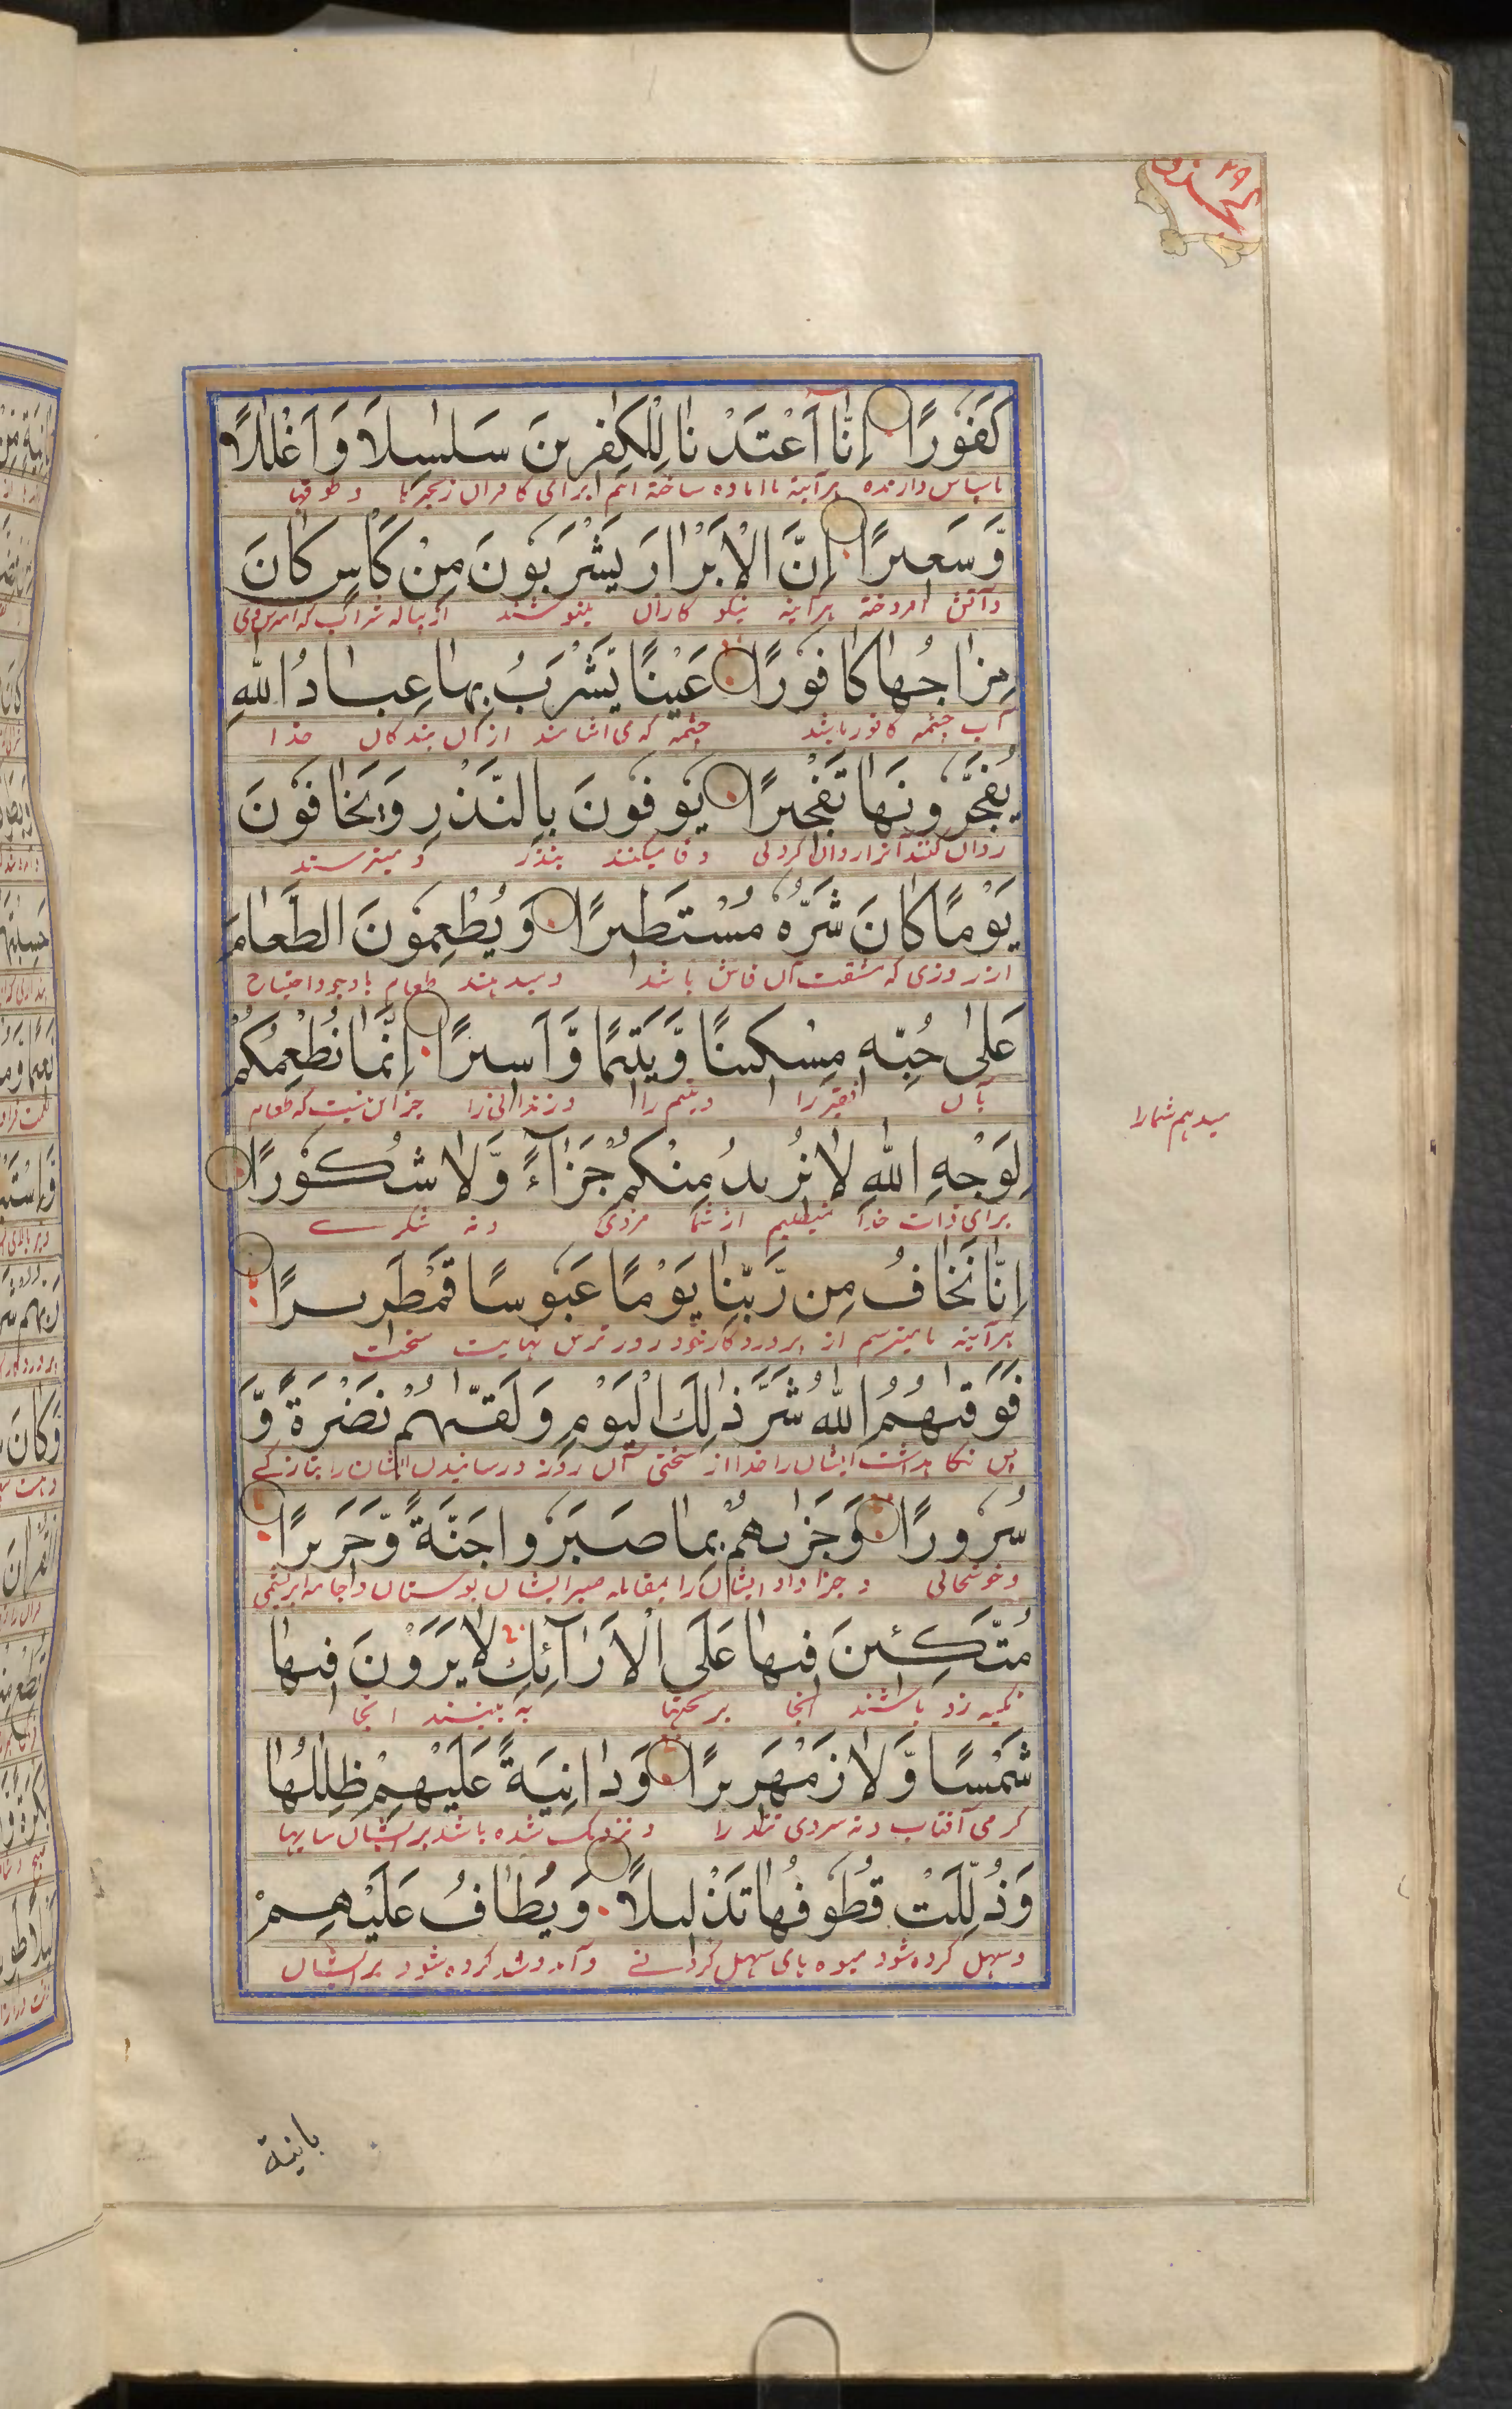 ٢٩
كَفُورًا اِنَّا اَعْتَدْنَا لِلْكٰفِرِينَ سَلٰسِلَا۟ وَ اَغْلٰلًا
ناسپاس دارنده هرآینه ما اماده ساخته ایم برای کافران زنجیرها و طوقها
وَّسَعِيرًا اِنَّ الْاَبْرَارَ يَشْرَبُونَ مِنْ كَاْسٍ كَانَ
وآتش افروخته هرآینه نیکو کاران مینوشند از پیاله شراب که
مِزَاجُهَا كَافُورًا عَيْنًا يَّشْرَبُ بِهَا عِبَادُ اللّٰهِ
آب چشمه کافور باشد چشمه که می اشامند ازان بندکان خدا
يُفَجِّرُونَهَا تَفْجِيرًا يُوفُونَ بِالنَّذْرِ وَيَخَافُونَ
روان کنند آنرا روان کردنی وفا میکنند بنذر و میترسند
يَوْمًا كَانَ شَرُّهٗ مُسْتَطِيرًا وَيُطْعِمُونَ الطَّعَامَ
از روزی که مشقت آن فاش باشد ومیدهند طعام باوجود احتیاج
عَلٰى حُبِّهٖ مِسْكِينًا وَّيَتِيمًا وَّاَسِيرًا اِنَّمَا نُطْعِمُكُمْ
بآن فقیر را ویتیم را وزندانی را جز این نیست که طعام
میدهیم شمارا
لِوَجْهِ اللّٰهِ لَا نُرِيدُ مِنْكُمْ جَزَآءً وَّلَا شُكُورًا
برای ذات خدا نمیطلبیم از شما مزدی ونه شکرے
اِنَّا نَخَافُ مِن رَّبِّنَا يَوْمًا عَبُوسًا قَمْطَرِيرًا
هرآینه مامیترسیم از پروردکار خود روز ترش نهایت سخت
فَوَقٰىهُمُ اللّٰهُ شَرَّ ذٰلِكَ الْيَوْمِ وَلَقّٰىهُمْ نَضْرَةً وَّ
پس نکاهداشت ایشان را خدا از سختی آن روز ورسانیدن ایشان را بتازکے
سُرُورًا وَجَزٰىهُمْ بِمَا صَبَرُوا جَنَّةً وَّحَرِيرًا
وخوشحالی وجزا داد ایشان را بمقابله صبر ایشان بوستان وجامه ابریشمی
مُتَّكِئِينَ فِيهَا عَلَى الْاَرَآئِكِ لَا يَرَوْنَ فِيهَا
تکیه زده باشند انجا بر تختها نه بینند انجا
شَمْسًا وَّلَا زَمْهَرِيرًا وَدَانِيَةً عَلَيْهِمْ ظِلٰلُهَا
کرمی آفتاب ونه سردی تند را ونزدیک شده باشد بر ایشان سایها
وَذُلِّلَتْ قُطُوفُهَا تَذْلِيلًا وَيُطَافُ عَلَيْهِمْ
وسهل کرده شود میوه های سهل کردنے وآمدوشد کرده شود بر ایشان
بانیة